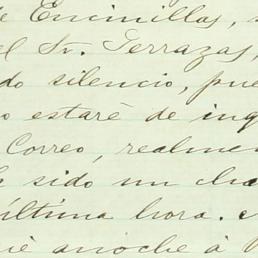 e Encinillas,
el Sr. Terrazas,
do silencio, pue
o estaré de ing
Correo, realmen
sido un cha
última hora.
ié anoche á